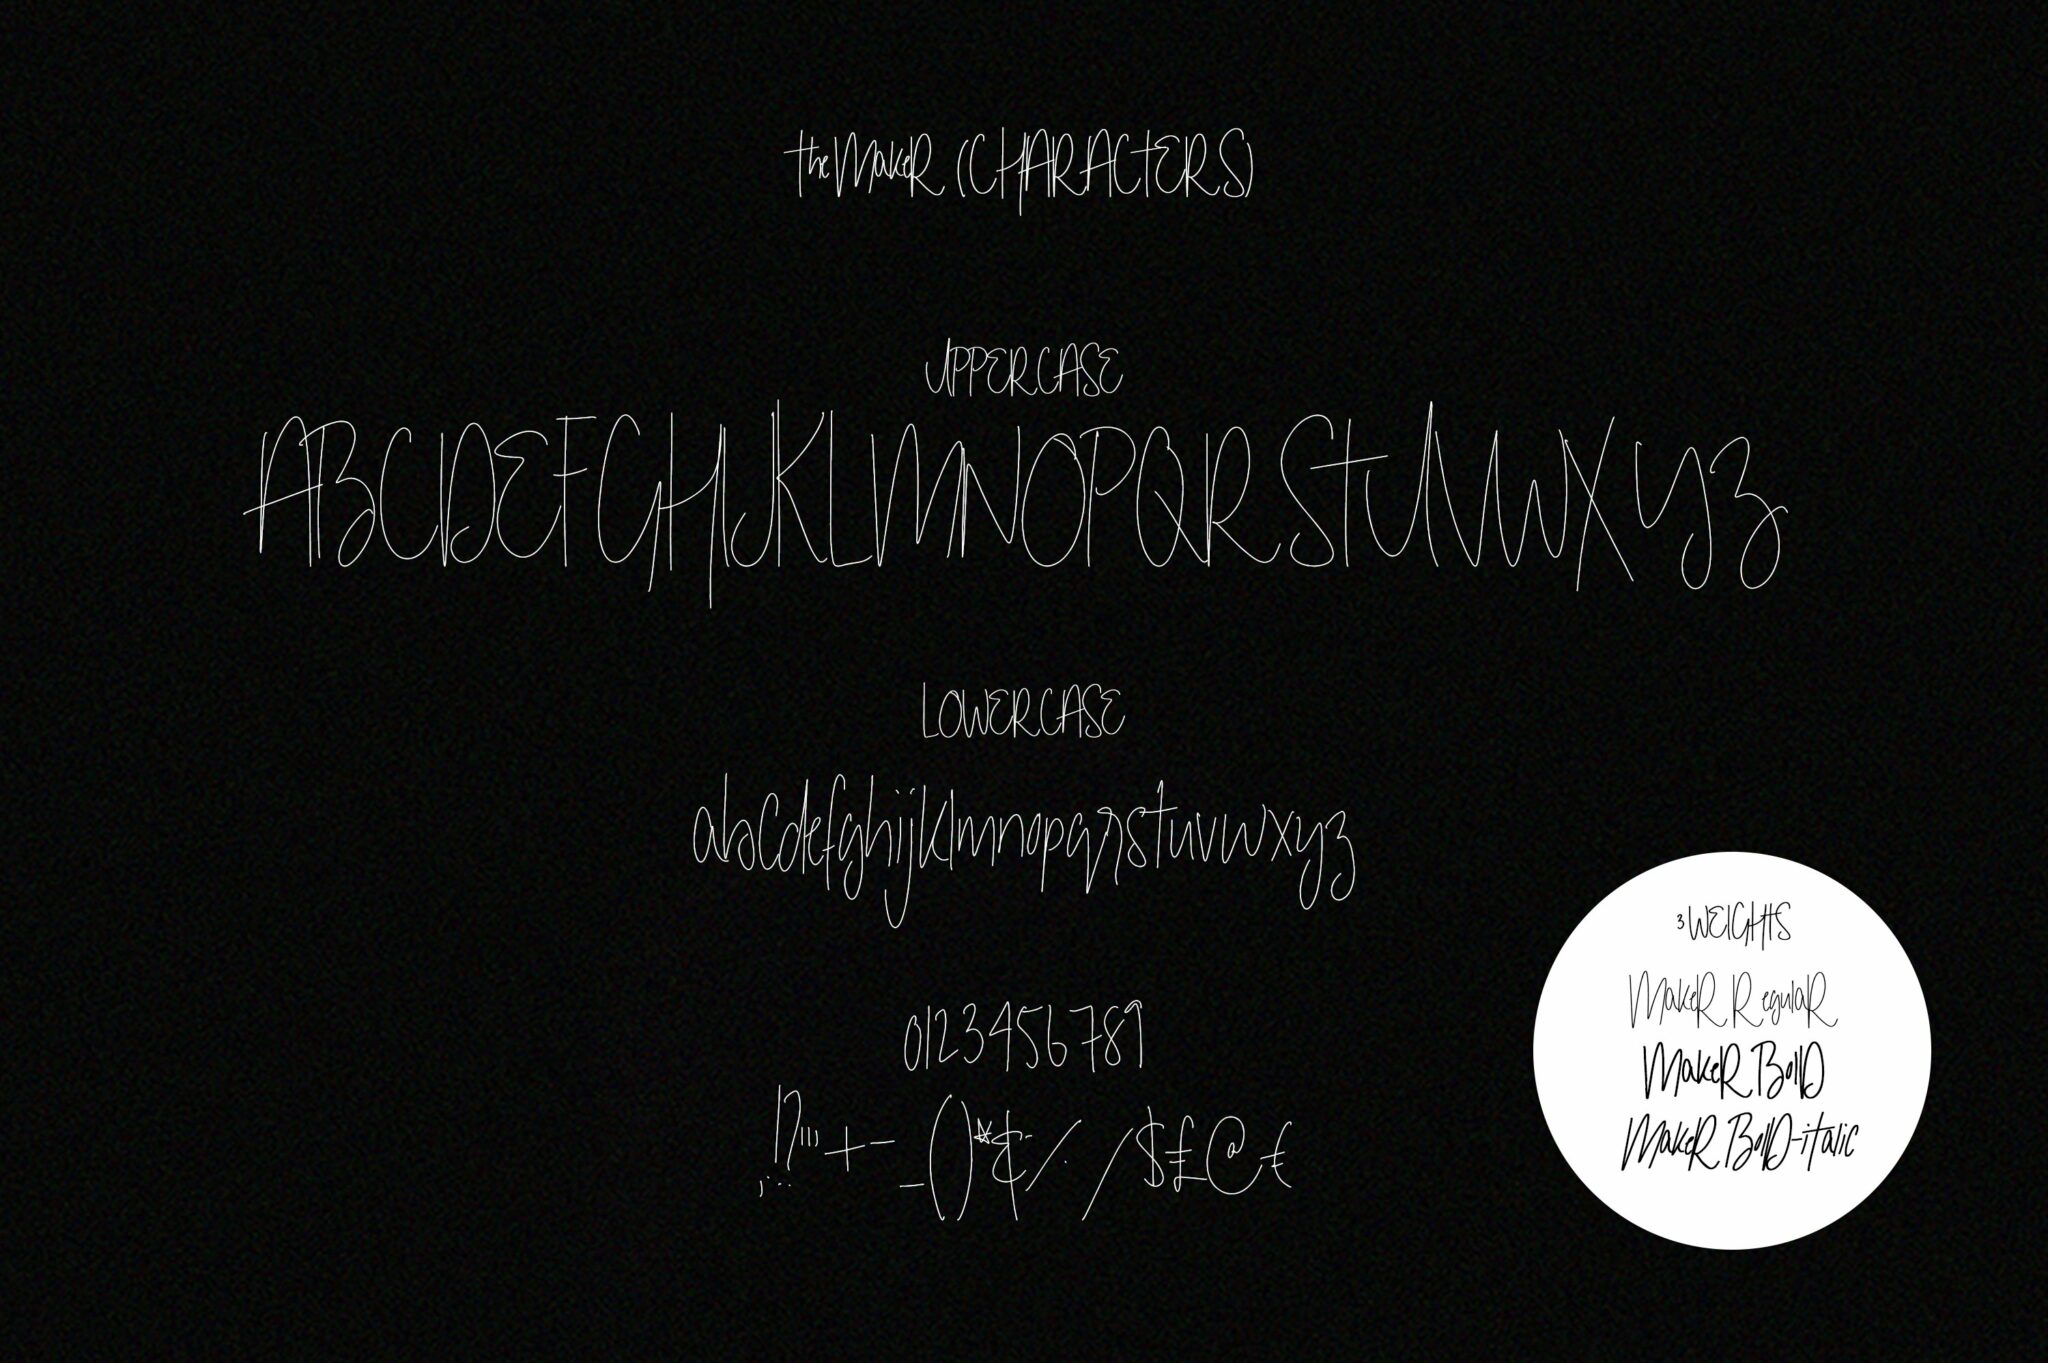 the MakeR (CHARACTERS)
UPPERCASE
ABCDEFGHIJKLMNOPQRSTUVWXYZ
LOWERCASE
abcdefghijklmnopqrstuvwxyz
0123456789
3 WEIGHTS
MakeR RegulaR
MakeR BolD
MakeR BolD-italic